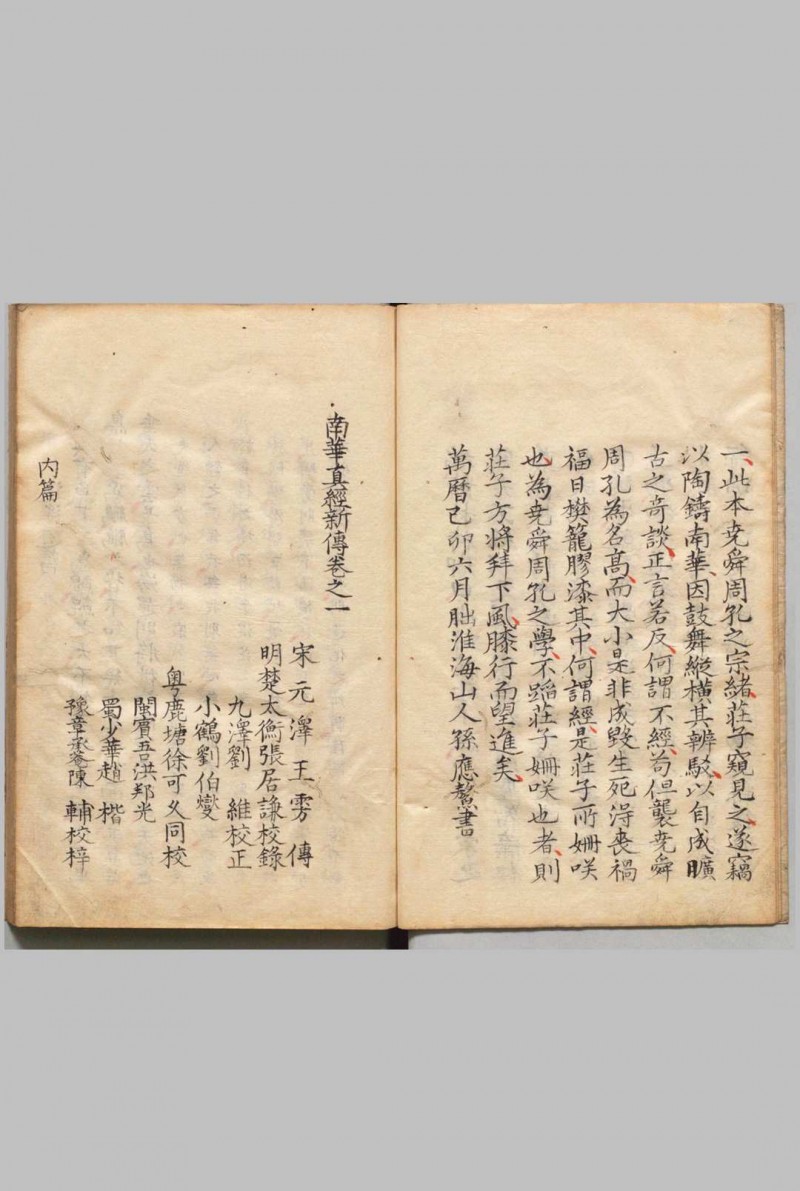 一此本堯舜周孔之宗緒莊子窺見之遂竊
以陶鑄南華因鼓舞縱橫其辨駁以自成曠
古之奇談正言若反何謂不經苟但襲堯舜
周孔為名高而大小是非成毀生死淂喪禍
福日樊籠膠漆其中何謂經是莊子所姍咲
也為堯舜周孔之學不蹈莊子姍咲也者則
莊子方將拜下風膝行而望進矣
萬曆己卯六月朏淮海山人孫應鰲書
南華真經新傳卷之一
宋元澤王雱傳
明楚太衡張居謙校錄
九澤劉維校正
小鶴劉伯燮
粵鹿塘徐可久同校
閩賓吾洪邦光
蜀少華趙楷
豫章承菴陳輔校梓
內篇